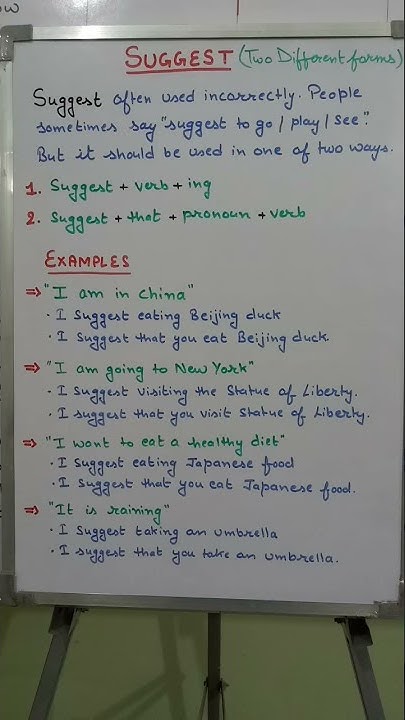 ow
SUGGEST (Two Different forms)
Suggest often used incorrectly. People
sometimes say "suggest to go / play / see".
But it should be used in one of two ways.
1. Suggest + verb + ing
2. Suggest + that + pronoun + verb
EXAMPLES
⇒ "I am in china"
· I suggest eating Beijing duck
· I suggest that you eat Beijing duck.
⇒ "I am going to New York"
· I suggest visiting the statue of Liberty.
· I suggest that you visit statue of Liberty.
⇒ "I want to eat a healthy diet"
· I suggest eating Japanese food
· I suggest that you eat Japanese food.
⇒ "It is raining"
· I suggest taking an umbrella
· I suggest that you take an umbrella.